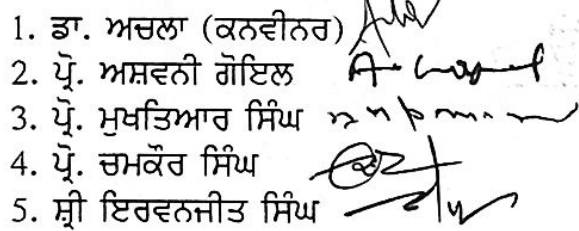 1. ਡਾ. ਅਚਲਾ (ਕਨਵੀਨਰ)
2. ਪ੍ਰੋ. ਅਸ਼ਵਨੀ ਗੋਇਲ
3. ਪ੍ਰੋ. ਮੁਖਤਿਆਰ ਸਿੰਘ
4. ਪ੍ਰੋ. ਚਮਕੌਰ ਸਿੰਘ
5. ਸ਼੍ਰੀ ਇਰਵਨਜੀਤ ਸਿੰਘ